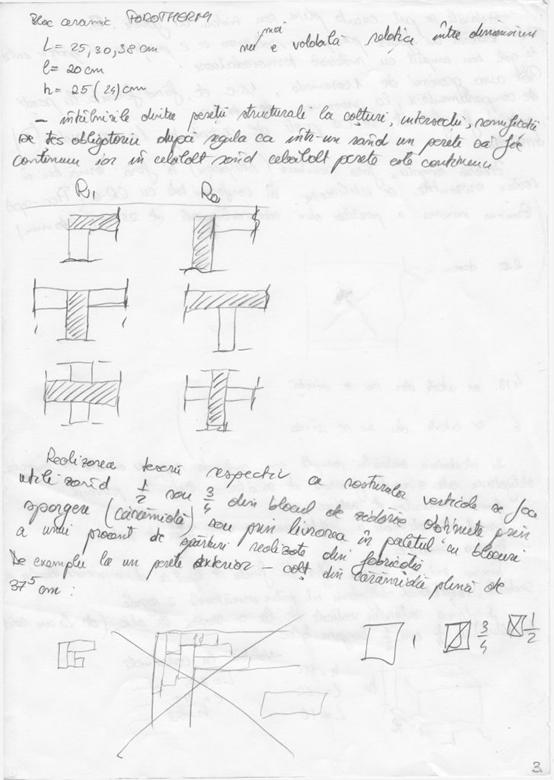 Bloc ceramic POROTHERM
mai
L = 25, 30, 38 cm nu e valabilă relatia între dimensiuni
l = 20 cm
h = 25 (24) cm
- întâlnirile dintre pereții structurali la colțuri, intersecții, ramificații
se țes obligatoriu după regula ca într-un rând un perete să fie
continuu iar în celălalt rând celălalt perete este continuu
R1 R2
Realizarea țeserii respectiv a rosturilor verticale se face
utilizând 1/2 sau 3/4 din blocul de zidărie obținute prin
spargere (cărămidă) sau prin livrarea în paletul cu blocuri
a unui procent de sparturi realizate din fabricație
De exemplu la un perete exterior - colț din cărămidă plină de
37⁵ cm :
1 3/4 1/2
3